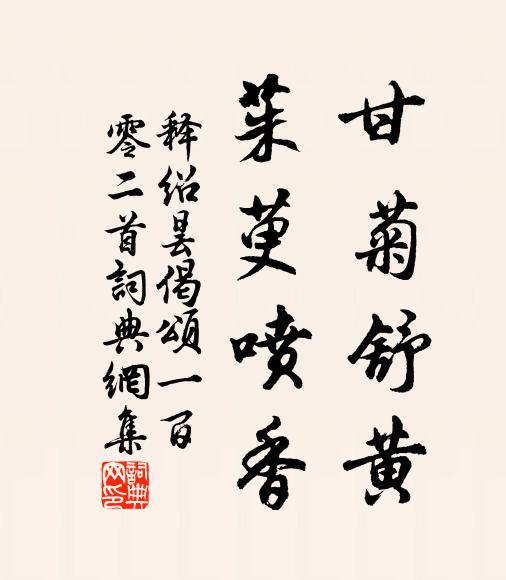 甘菊舒黄
茱萸喷香
释绍昙偈颂一百
零二首詞典網集
詞典網印